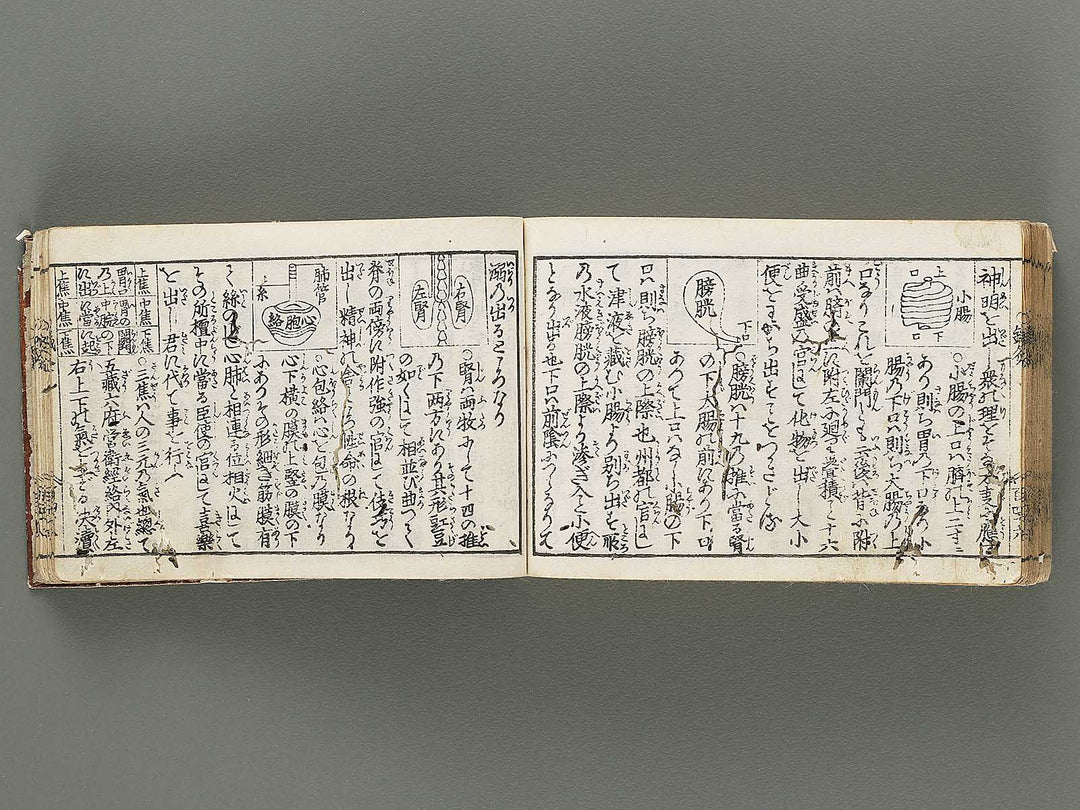 神明を出し衆の理を
小腸
上
口
下
口
○小腸の上口ハ臍の上二寸ニ
あり則ち胃乃下口なり小
腸乃下口ハ則ち大腸乃上
口なりこれを闌門とも云後ハ脊に附
前ハ臍に附左に廻り畳積こと十六
曲受盛の官にして化物を出し大小
便をわかち出すことをつかさどる
膀胱
下口
○膀胱ハ十九乃推に當る腎
の下大腸の前にあり下口
あつて上口ハなし小腸の下
口ハ則ち膀胱の上際也州都の官にし
て津液を藏む小腸より別ち出す所
乃水液膀胱の上際より滲ぎ入て小便
となり出る也下口ハ前陰
溺乃出るところなり
右腎
左腎
○腎ハ両枚にして十四の推
乃下両方にあり其形豇豆
の如くにして相並び曲つて
脊の両傍に附作強の官にして伎
出し精神の舎にして性命の根なり
肺管
系
心胞絡
○心包絡ハ心を包乃膜なり
心下横の膜の上堅の膜の下
にありその形細き筋膜有
て絲の心肺と相連る位相火にして
その所膻中に當る臣使の官にして喜樂
を出し君に代て事を行ふ
上焦 中焦 下焦
上焦 中焦 下焦
○三焦ハ人の三元乃氣也總て
五藏六府営衛經絡内外左
右上下の氣を主どる決瀆